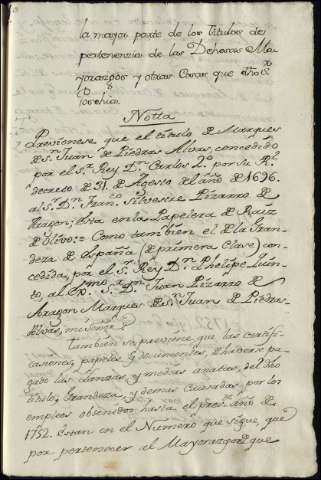 la mayor parte de los titulos de
pertenencia de las Dehesas Ma
yorazgos y otras Cosas que
Notta
Previenese que el titulo de Marques
de Sn. Juan de Piedras Alvas, concedido
por el Sr. Rey Dn. Carlos 2º. por su Rl.
decreto de 31. de Agosto del año de 1696.
al Sr. Dn. Franco. Silvestre Pizarro de
Aragon; Esta en la Papelera de Raiz
de Olivo:= Como tambien el de la Gran
deza de España (de primera Clase) con
cedida, por el Sr. Rey Dn. Phelipe Quin
to, al Exmo. Sr. Dn. Juan Pizarro de
Aragon Marques de Sn. Juan de Piedras
Alvas,
Tambien se previene que las certifi
caciones, papeles y documentos, de haverse pa
gado las lanzas, y medias anatas, del dho
titulo, Grandeza, y demas Causadas, por los
empleos obtenidos hasta el preste. año de
1752. Estan en el Numero que sigue, que
por pertenecer al Mayorazgo de que